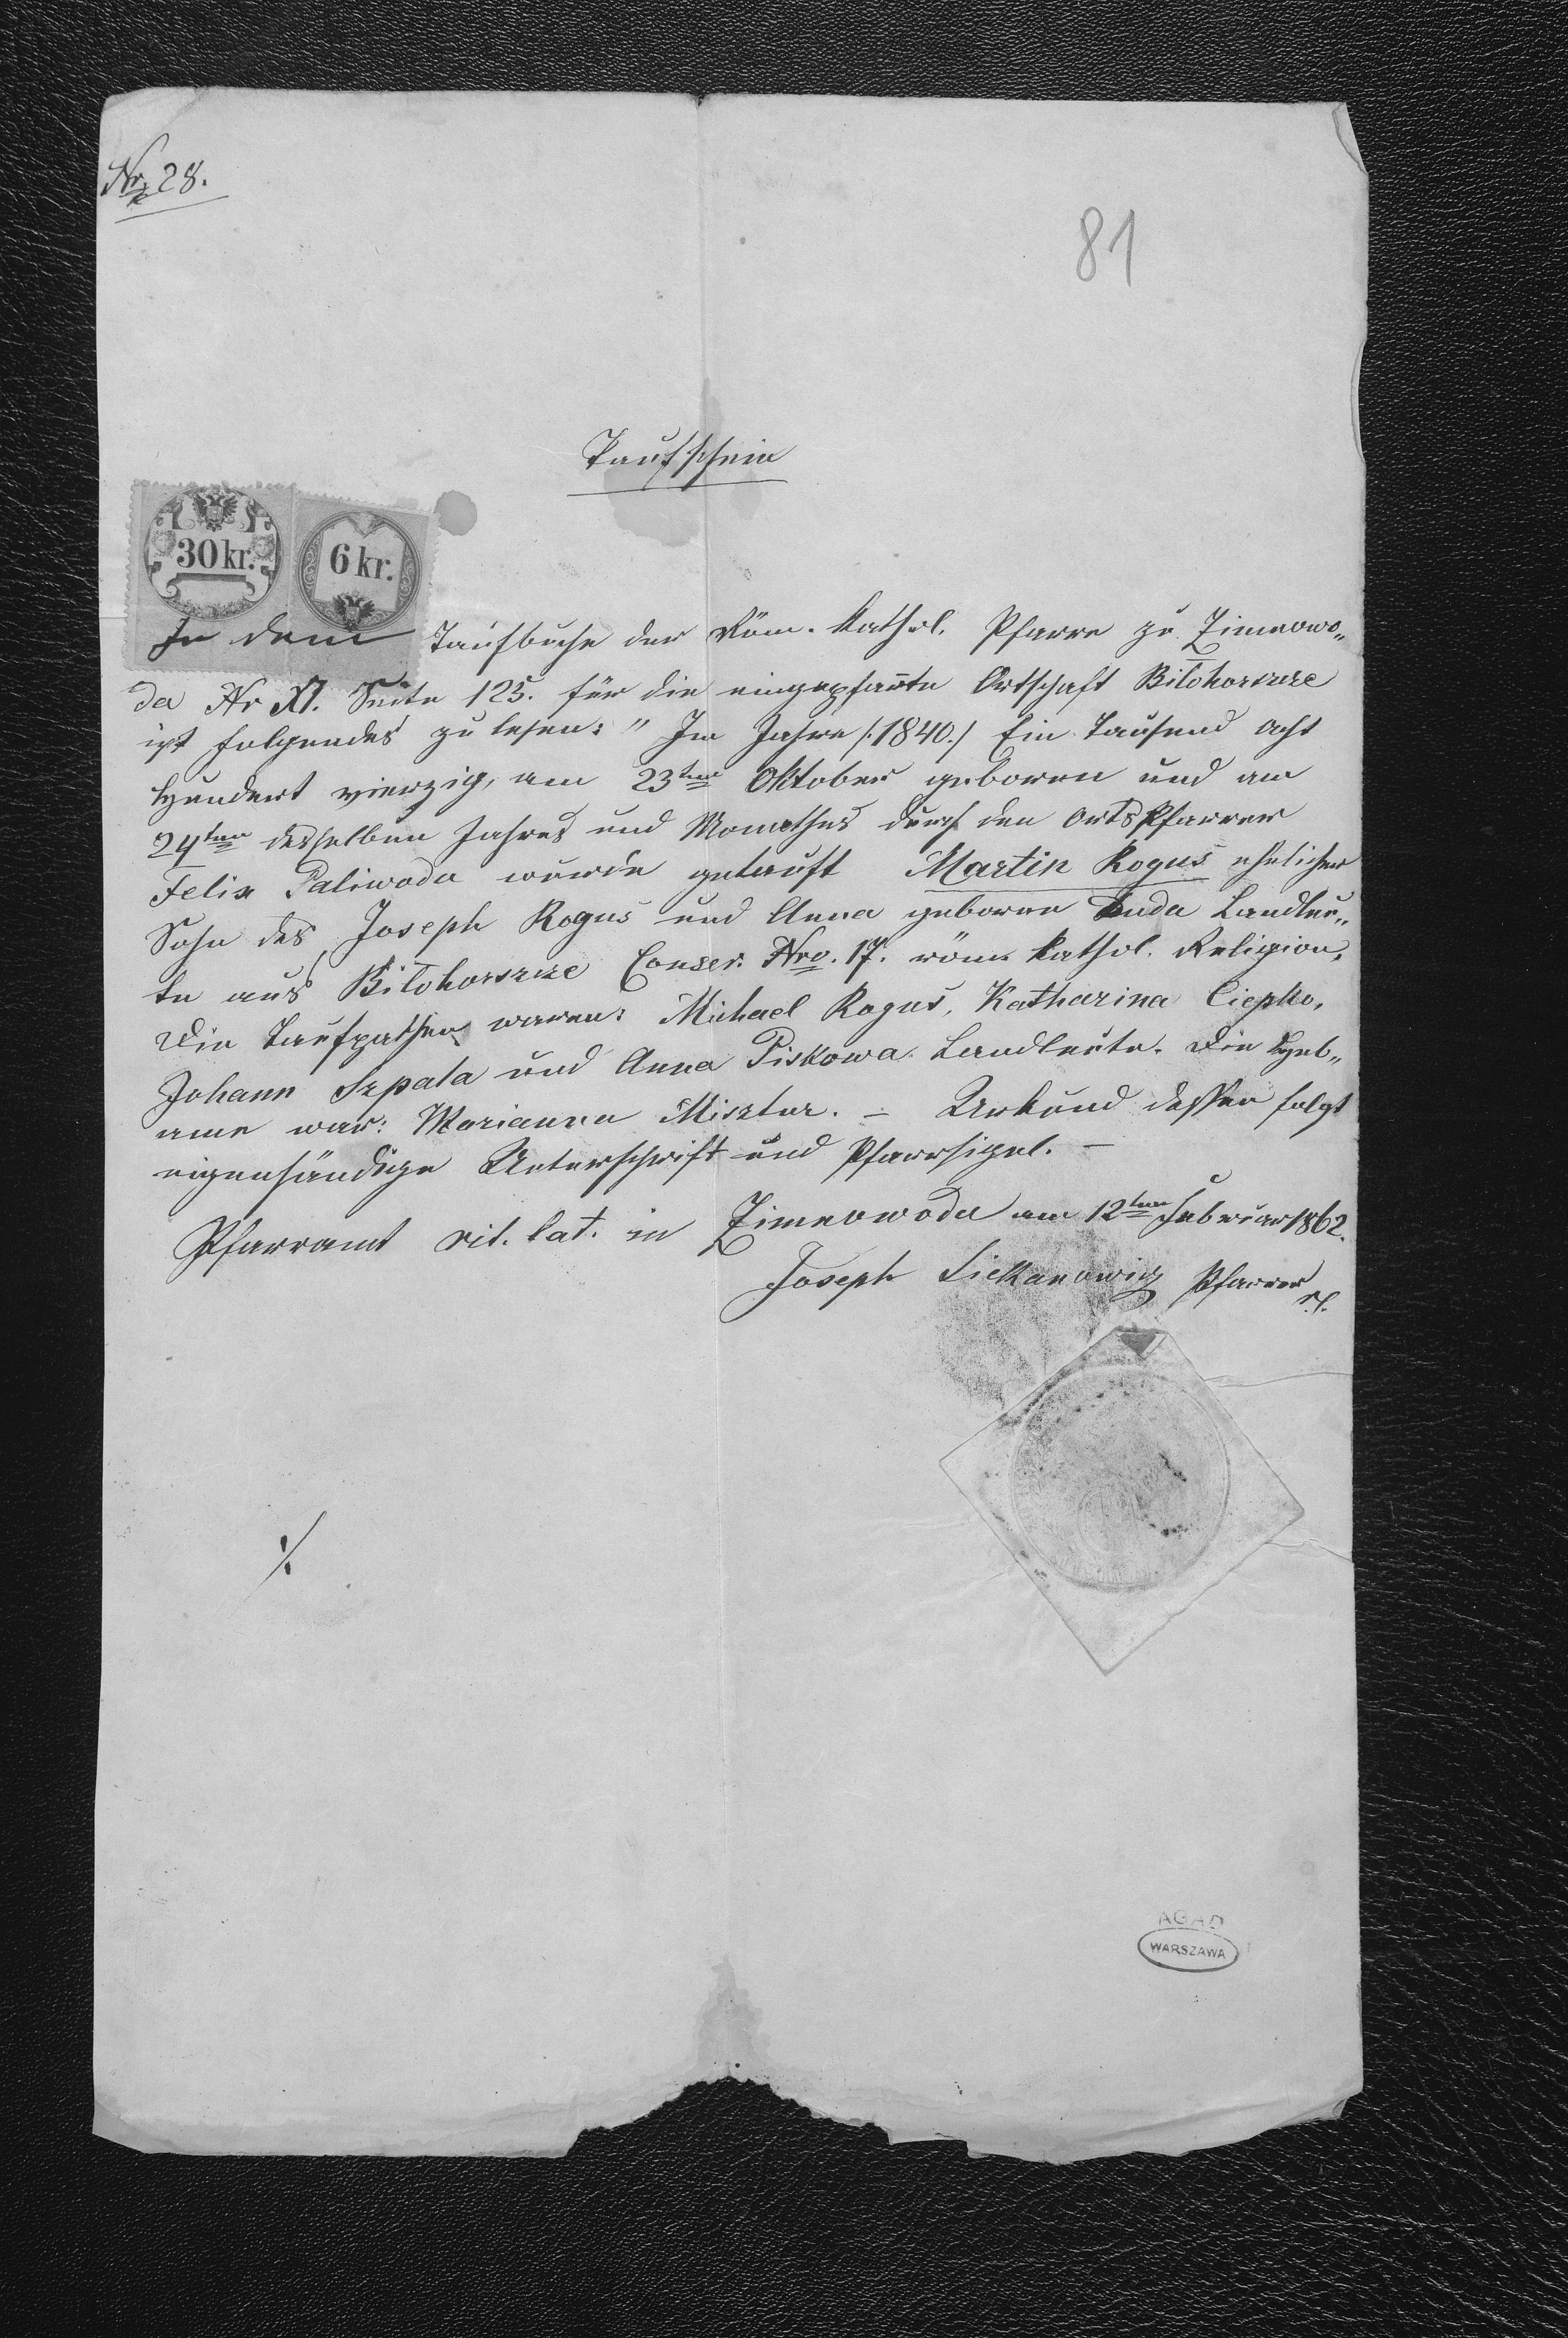 Nr. 28.
81
Taufschein
30 kr.
6 kr.
In dem Taufbuche der Röm. Kathol. Pfarre zu Zimnowo„
da Nr XI. Seite 125. für die eingepfarrte Ortschaft Bilohorszcze
ist folgendes zu lesen: " Im Jahre /:1840:/ Ein Tausend acht
Hundert vierzig, am 23ten Oktober geboren und am
24ten desselben Jahres und Monathes durch den Ortspfarrer
Felix Paliwoda wurde getauft Martin Rogus ehelicher
Sohn des Joseph Rogus und Anna geborne Duda Landleu„
te aus Bilohorszcze Conscr. Nro. 17. röm. kathol. Religion.
Die Taufpathen waren: Michael Rogus, Katharina Ciepko,
Johann Szpala und Anna Piskowa Landleute. Die Heb„
ame war: Marianna Misztur. – Urkund dessen folgt
eigenhändige Unterschrift und Pfarrsigel. –
Pfarramt rit. lat. in Zimnowoda am 12ten Februar 1862.
Joseph Pfarrer
AGAD
WARSZAWA